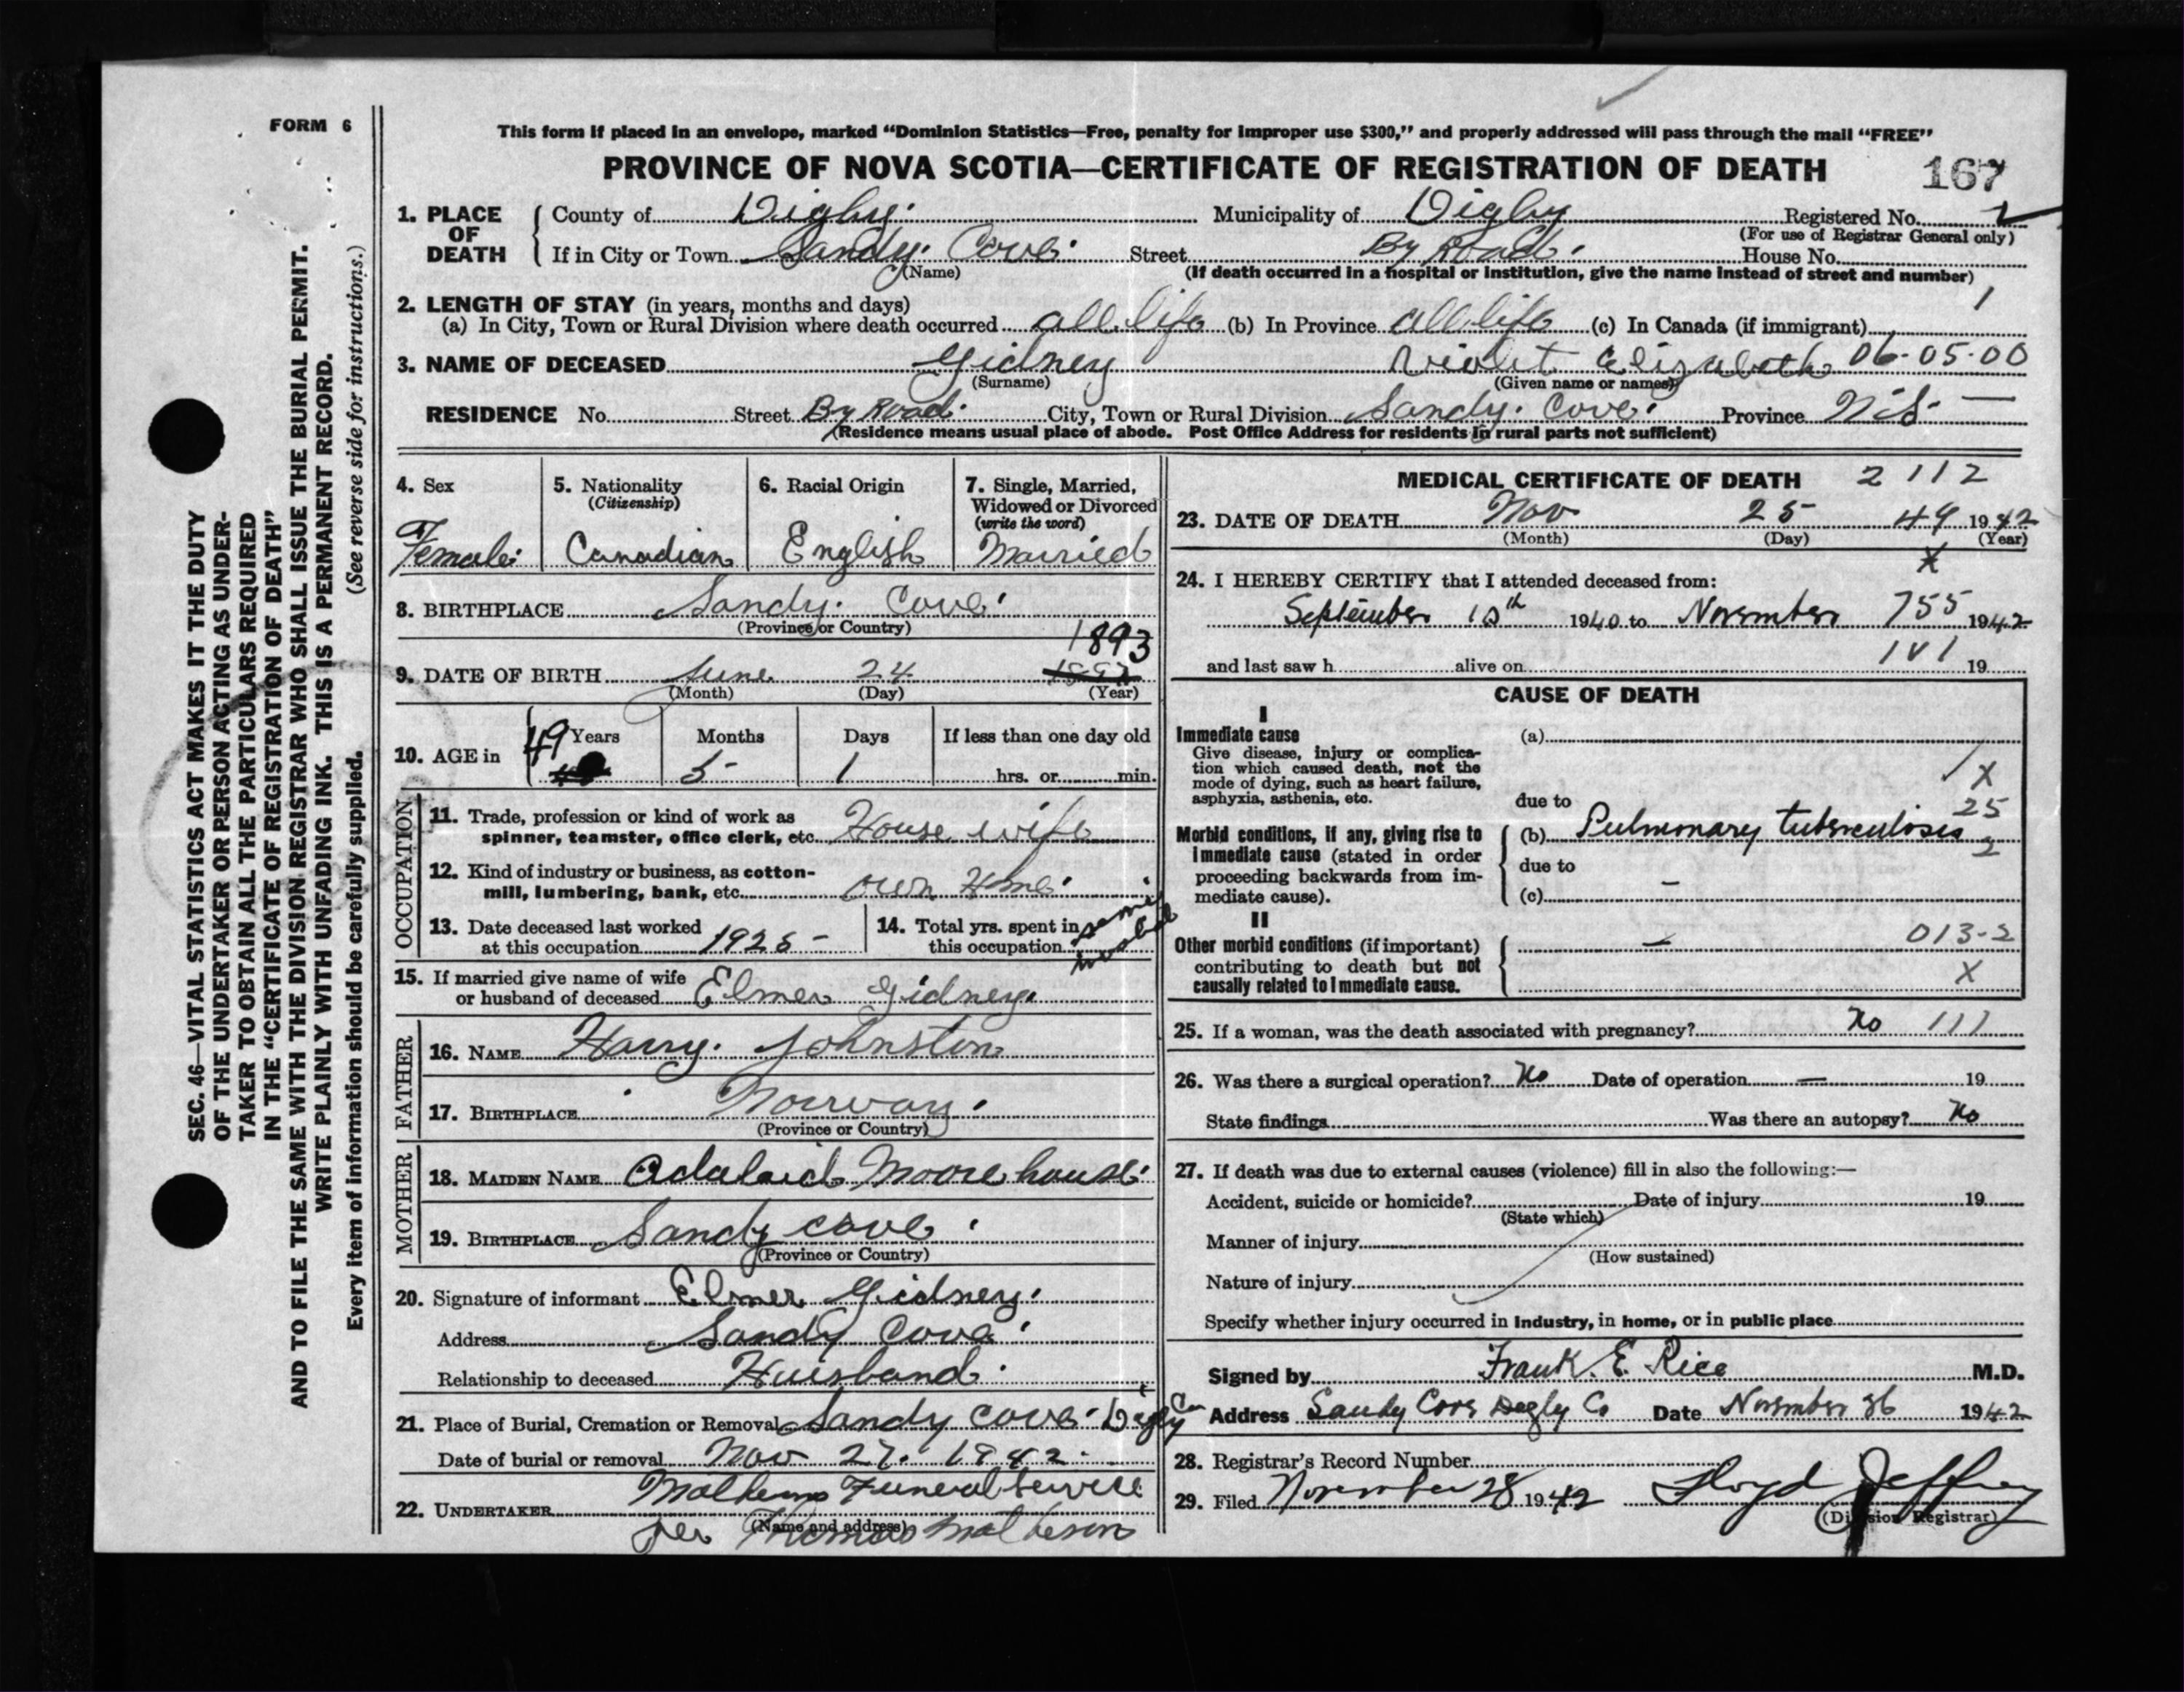 FORM 6
This form if placed in an envelope, marked “Dominion Statistics—Free, penalty for improper use $300,” and properly addressed will pass through the mail “FREE”
PROVINCE OF NOVA SCOTIA—CERTIFICATE OF REGISTRATION OF DEATH
167
1. PLACE OF DEATH
County of Digby. Municipality of Digby Registered No.
(For use of Registrar General only)
If in City or Town Sandy. Cove. Street By Road. House No.
(Name) (If death occurred in a hospital or institution, give the name instead of street and number)
2. LENGTH OF STAY (in years, months and days)
(a) In City, Town or Rural Division where death occurred all. life (b) In Province all life (c) In Canada (if immigrant) 1
3. NAME OF DECEASED Gidney Violet Elizabeth 06-05-00
(Surname) (Given name or names)
RESIDENCE No. Street By Road. City, Town or Rural Division Sandy. Cove. Province N.S. —
(Residence means usual place of abode. Post Office Address for residents in rural parts not sufficient)
4. Sex
Female.
5. Nationality
(Citizenship)
Canadian
6. Racial Origin
English
7. Single, Married,
Widowed or Divorced
(write the word)
Married
8. BIRTHPLACE Sandy. Cove.
(Province or Country)
1893
9. DATE OF BIRTH June 24
(Month) (Day) (Year)
10. AGE in 49 Years 5 Months 1 Days If less than one day old
hrs. or min.
OCCUPATION
11. Trade, profession or kind of work as
spinner, teamster, office clerk, etc. House wife
12. Kind of industry or business, as cotton-
mill, lumbering, bank, etc. own Home.
13. Date deceased last worked
at this occupation 1925 -
14. Total yrs. spent in
this occupation
15. If married give name of wife
or husband of deceased Elmer Gidney.
FATHER
16. NAME Harry. Johnston
17. BIRTHPLACE Norway.
(Province or Country)
MOTHER
18. MAIDEN NAME Adalaid Moorehouse.
19. BIRTHPLACE Sandy cove.
(Province or Country)
20. Signature of informant Elmer Gidney.
Address Sandy Cove.
Relationship to deceased Huisband.
21. Place of Burial, Cremation or Removal Sandy cove. Digby Co
Date of burial or removal Nov 27. 1942.
22. UNDERTAKER Funeral Service
(Name and address)
per Thomas Matheson
MEDICAL CERTIFICATE OF DEATH 2 112
23. DATE OF DEATH Nov 25 49 1942
(Month) (Day) (Year)
X
24. I HEREBY CERTIFY that I attended deceased from:
September 10th 1940 to November 755 1942
and last saw h alive on 19
CAUSE OF DEATH
I
Immediate cause
Give disease, injury or complica-
tion which caused death, not the
mode of dying, such as heart failure,
asphyxia, asthenia, etc.
(a)
X
due to
25
Morbid conditions, if any, giving rise to
immediate cause (stated in order
proceeding backwards from im-
mediate cause).
(b) Pulmonary tuberculosis
2
due to
(c) —
II
Other morbid conditions (if important)
contributing to death but not
causally related to immediate cause.
— 013-2
X
25. If a woman, was the death associated with pregnancy? No 111
26. Was there a surgical operation? No Date of operation — 19
State findings Was there an autopsy? No
27. If death was due to external causes (violence) fill in also the following:—
Accident, suicide or homicide? Date of injury 19
(State which)
Manner of injury
(How sustained)
Nature of injury
Specify whether injury occurred in industry, in home, or in public place
Signed by Frank. E. Rice M.D.
Address Sandy Cove Digby Co Date November 26 1942
28. Registrar's Record Number
29. Filed November 28 1942 Lloyd Jeffrey
(Division Registrar)
SEC. 46—VITAL STATISTICS ACT MAKES IT THE DUTY
OF THE UNDERTAKER OR PERSON ACTING AS UNDER-
TAKER TO OBTAIN ALL THE PARTICULARS REQUIRED
IN THE “CERTIFICATE OF REGISTRATION OF DEATH”
AND TO FILE THE SAME WITH THE DIVISION REGISTRAR WHO SHALL ISSUE THE BURIAL PERMIT.
WRITE PLAINLY WITH UNFADING INK. THIS IS A PERMANENT RECORD.
Every item of information should be carefully supplied. (See reverse side for instructions.)